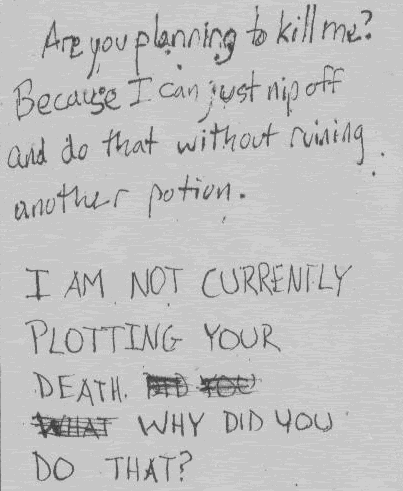 Are you planning to kill me?
Because I can just nip off
and do that without ruining
another potion.
I AM NOT CURRENTLY
PLOTTING YOUR
DEATH. DID YOU
WHAT WHY DID YOU
DO THAT?